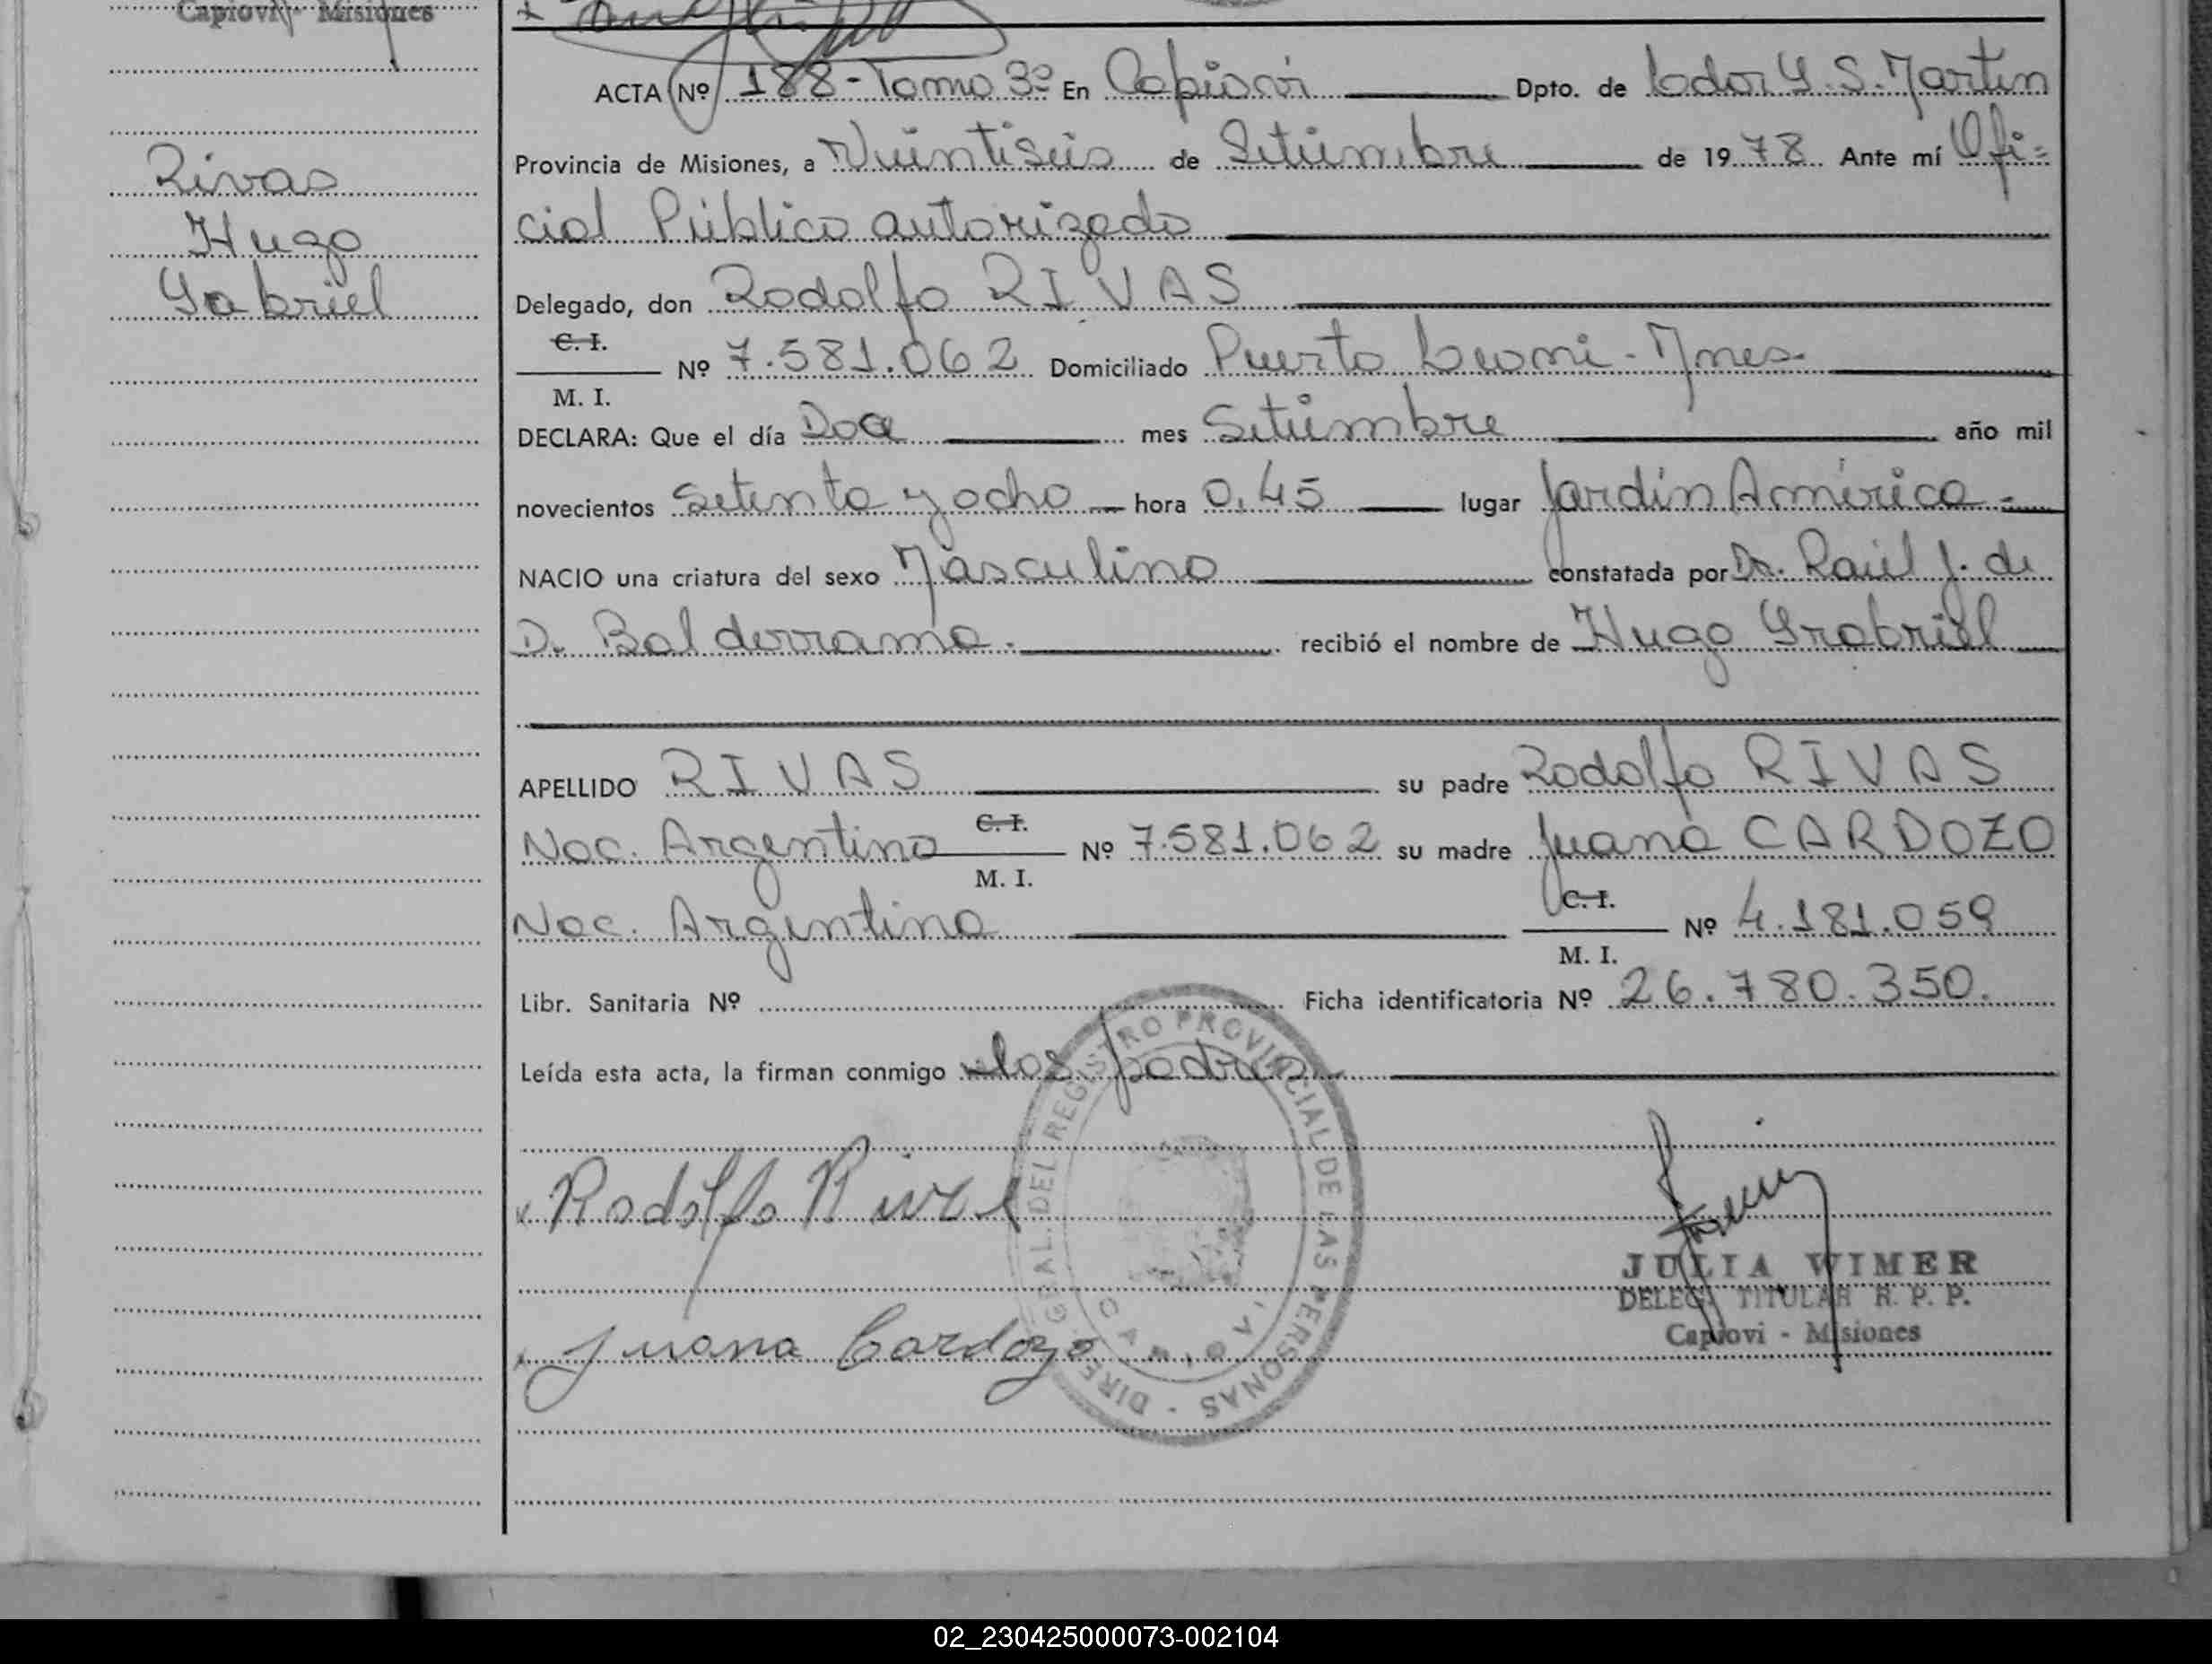 Capioví - Misiones
Rivas
Hugo
Gabriel
ACTA Nº 188 - Tomo 3º En Capioví Dpto. de Lddor G. S. Martin
Provincia de Misiones, a Veintiseis de Setiembre de 1978 Ante mí Ofi=
cial Público autorizado
Delegado, don Rodolfo RIVAS
C. I.
Nº 7.581.062 Domiciliado Puerto Leoni - Mnes.
M. I.
DECLARA: Que el día Doce mes Setiembre año mil
novecientos Setenta y ocho hora 0,45 lugar Jardín América -
NACIO una criatura del sexo Masculino constatada por Dr. Raúl J. de
D. Balderrama. recibió el nombre de Hugo Gabriel
APELLIDO RIVAS su padre Rodolfo RIVAS
Nac. Argentino C. I. Nº 7.581.062 su madre Juana CARDOZO
M. I.
Nac. Argentina C. I. Nº 4.181.059
M. I.
Libr. Sanitaria Nº Ficha identificatoria Nº 26.780.350.
Leída esta acta, la firman conmigo los padres
x Rodolfo Rivas
x Juana Cardozo
GRAL. DEL REGISTRO PROVINCIAL DE LAS PERSONAS - DIRE
JULIA WIMER
DELEG. TITULAR R. P. P.
Capiovi - Misiones
02_230425000073-002104